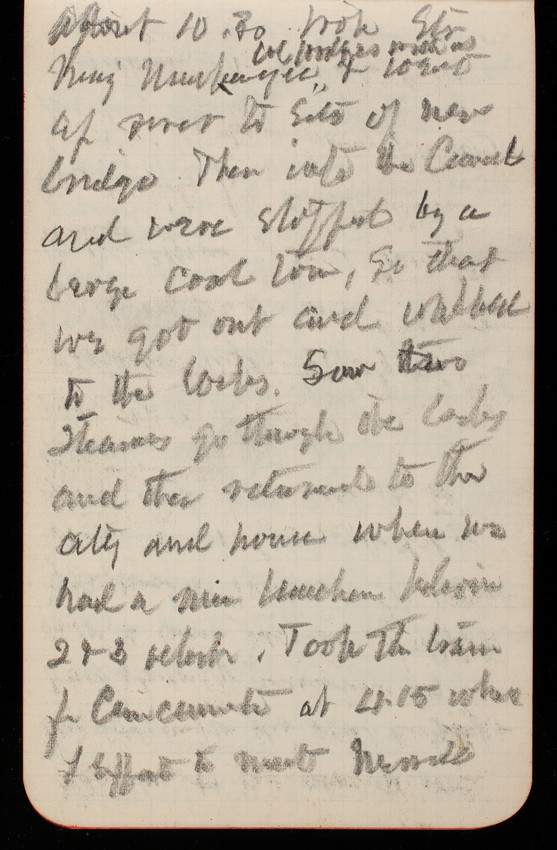 about 10.30 took Str
Col Hodges with us
& went
up river to site of new
bridge Then into the Canal
and were stopped by a
large coal tow, So that
we got out and walked
to the locks. Saw two
Steamers go through the locks
and then returned to the
city and house where we
had a nice luncheon between
2 & 3 oclock. Took the train
for Cincinnati at 4.05 where
I expect to meet Merrill